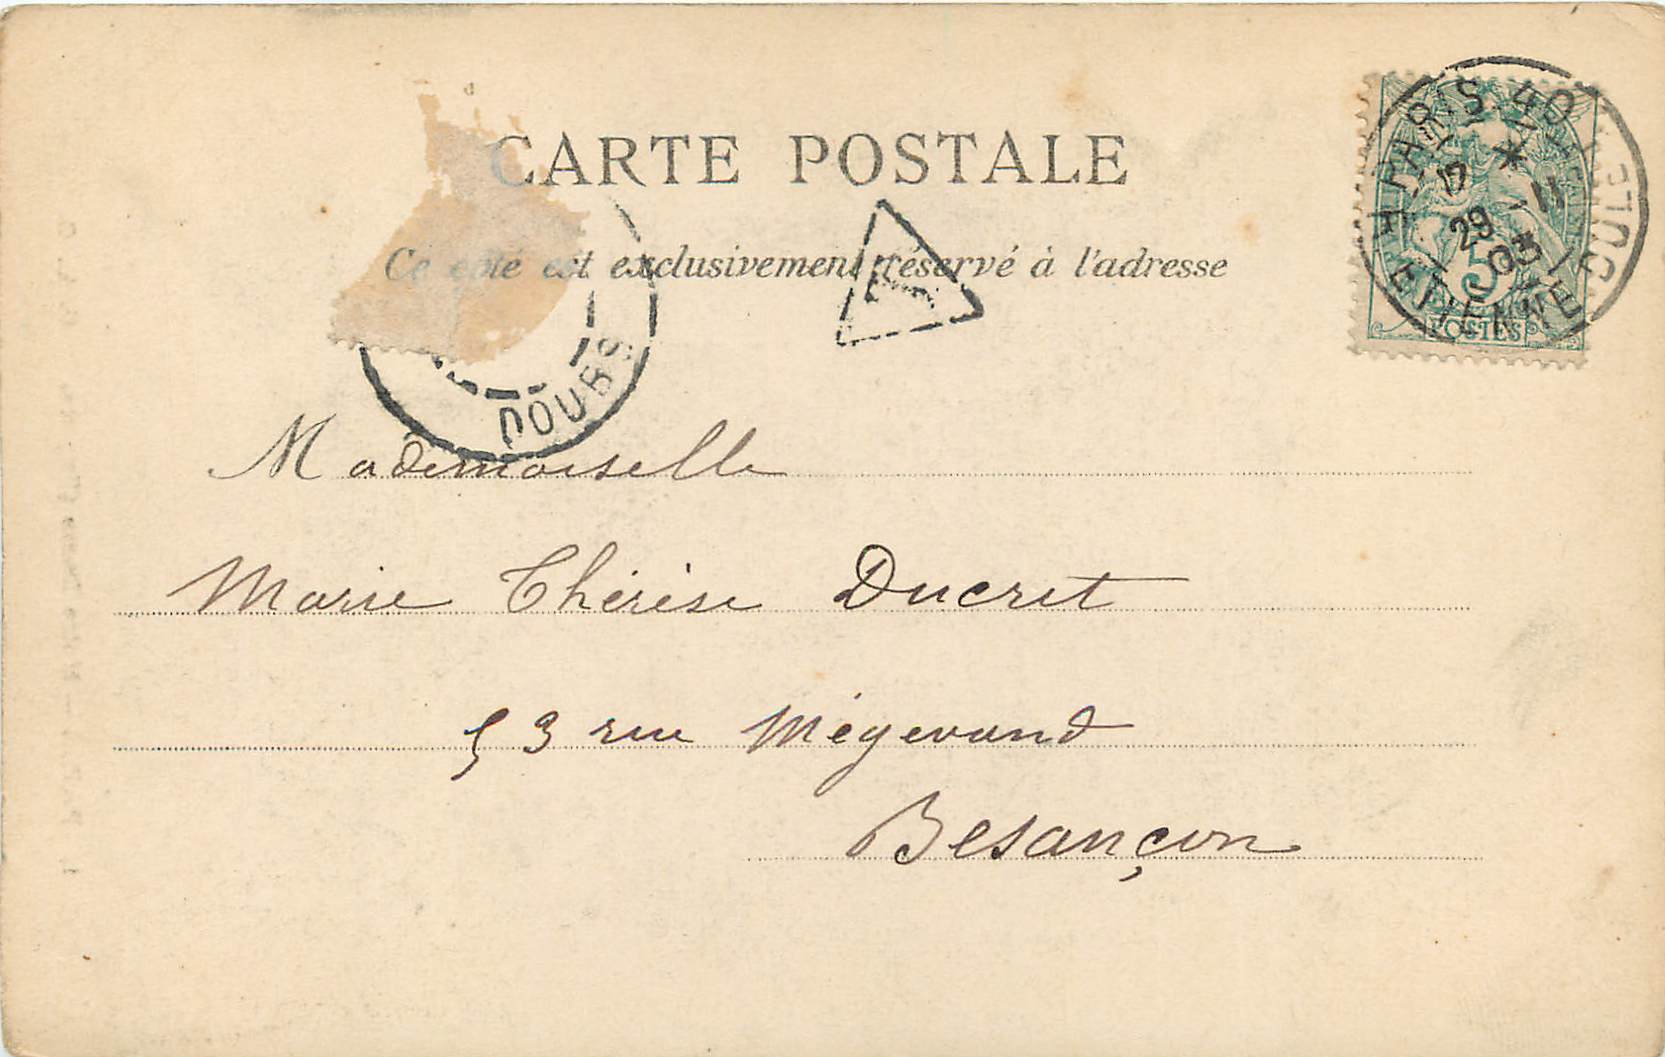 CARTE POSTALE
Ce côté est exclusivement réservé à l'adresse
PARIS 40
17 *
29 - 11
03
R. ETIENNE
5
POSTES
DOUBS
T
Mademoiselle
Marie Thérèse Ducret
53 rue Mégevand
Besançon